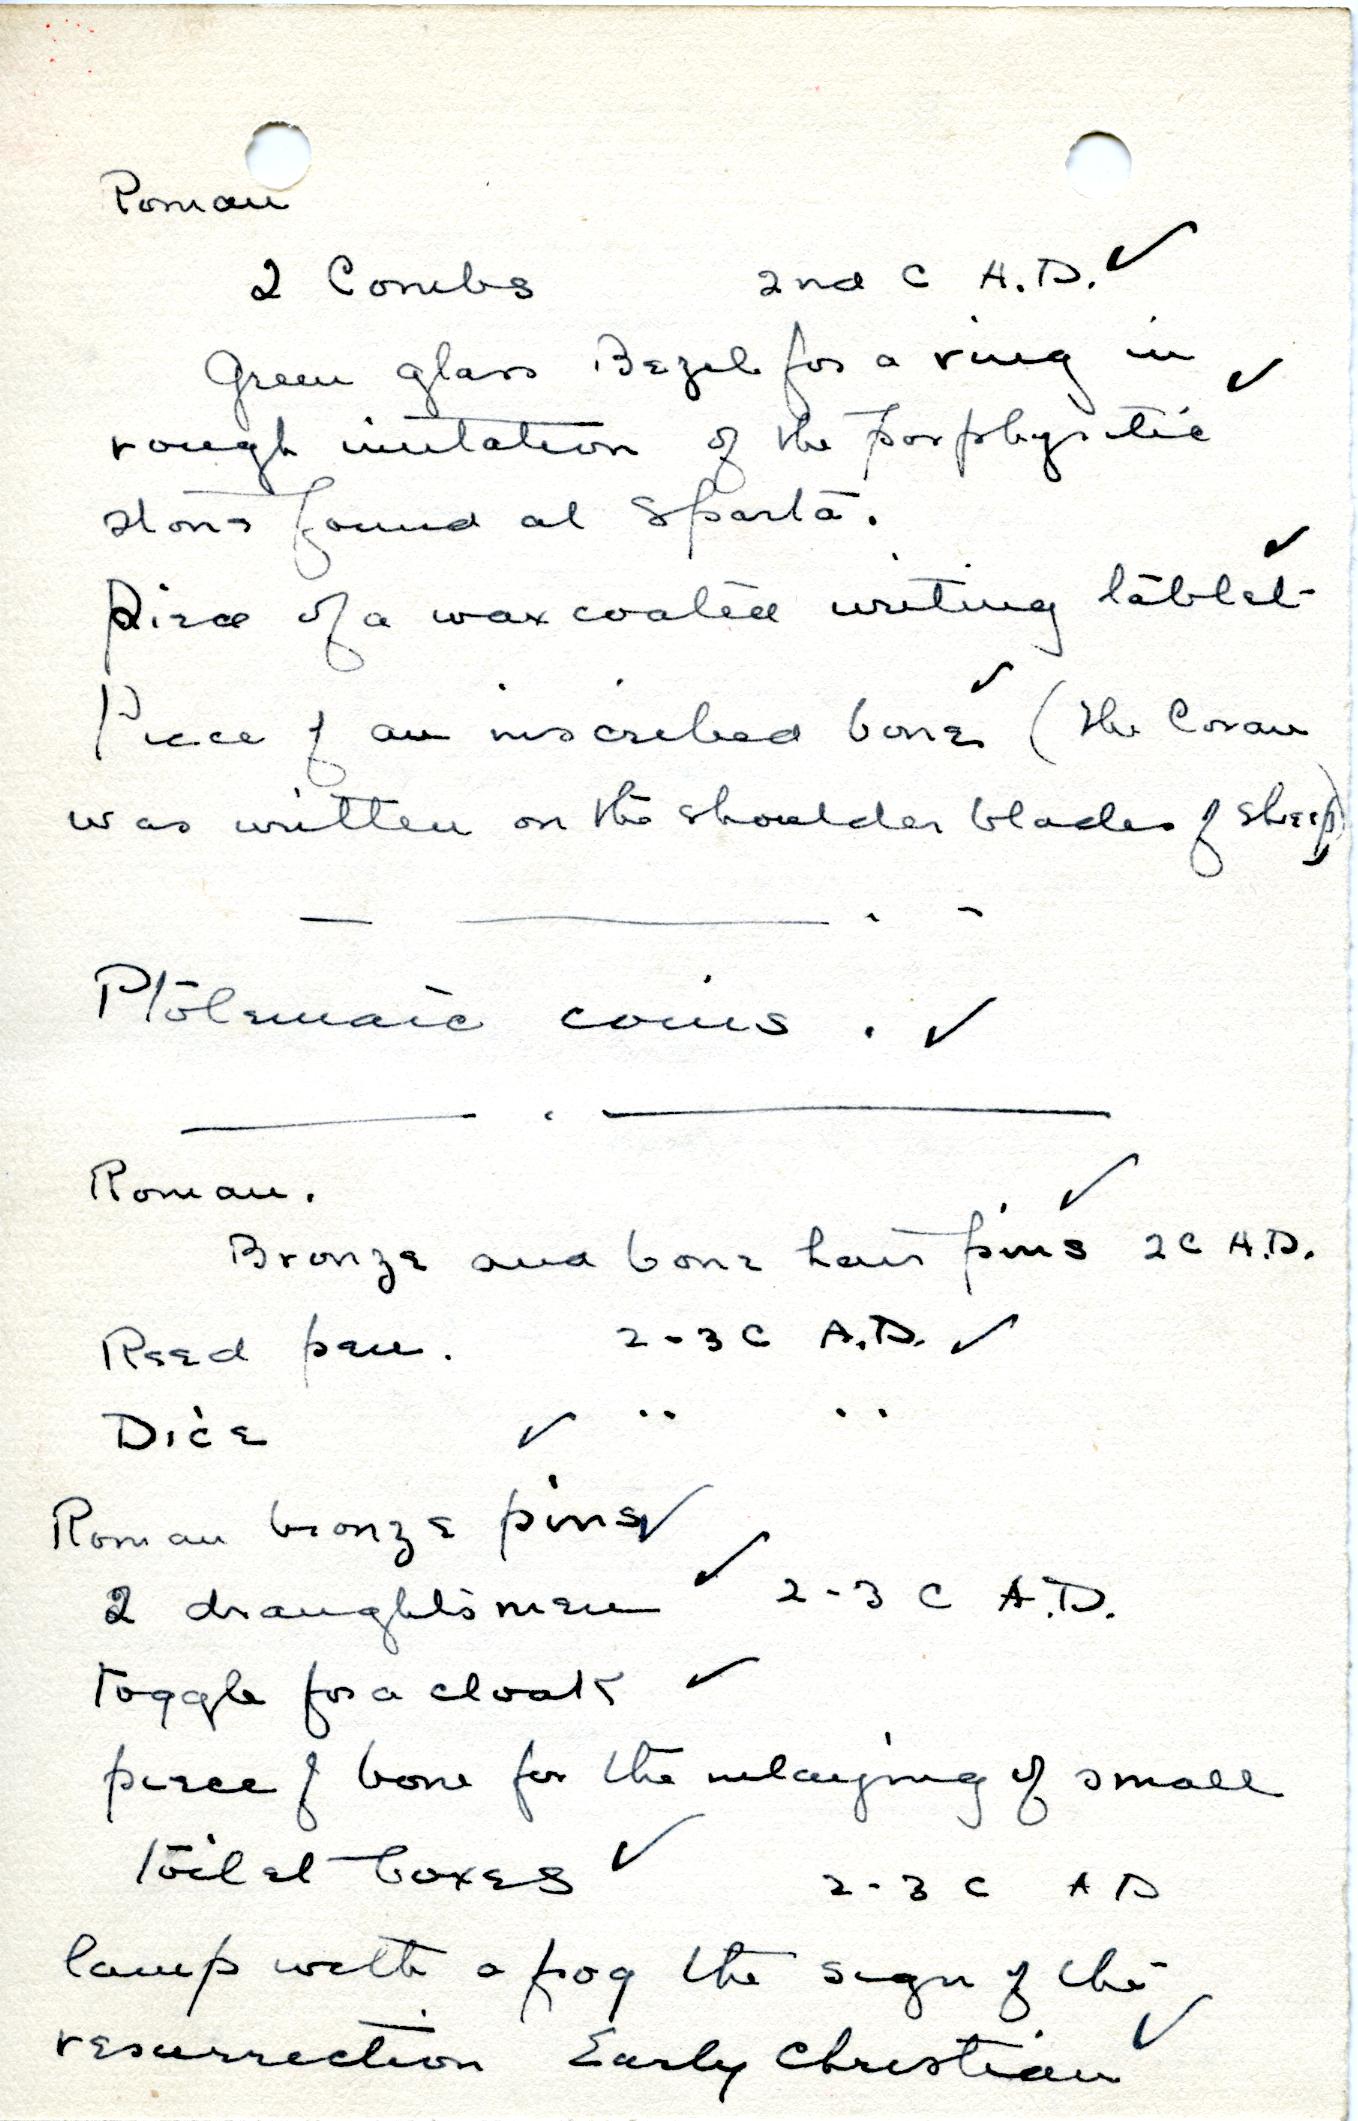 Roman
2 Combs 2nd C A.D. ✓
Green glass Bezel for a ring in ✓
rough imitation of the porphyritic
stone found at Sparta.
Piece of a wax coated writing tablet ✓
Piece of an inscribed bone ✓ (the Coran
was written on the shoulder blades of sheep)
Ptolemaic coins. ✓
Roman.
Bronze and bone hair pins ✓ 2C A.D.
Reed pen. 2-3 C A.D. ✓
Dice ✓ " "
Roman bronze pins ✓
2 draughtsmen ✓ 2-3 C A.D.
toggle for a cloak ✓
piece of bone for the of small
toilet boxes ✓ 2-3 C A D
lamp with a frog the sign of the
resurrection Early Christian ✓